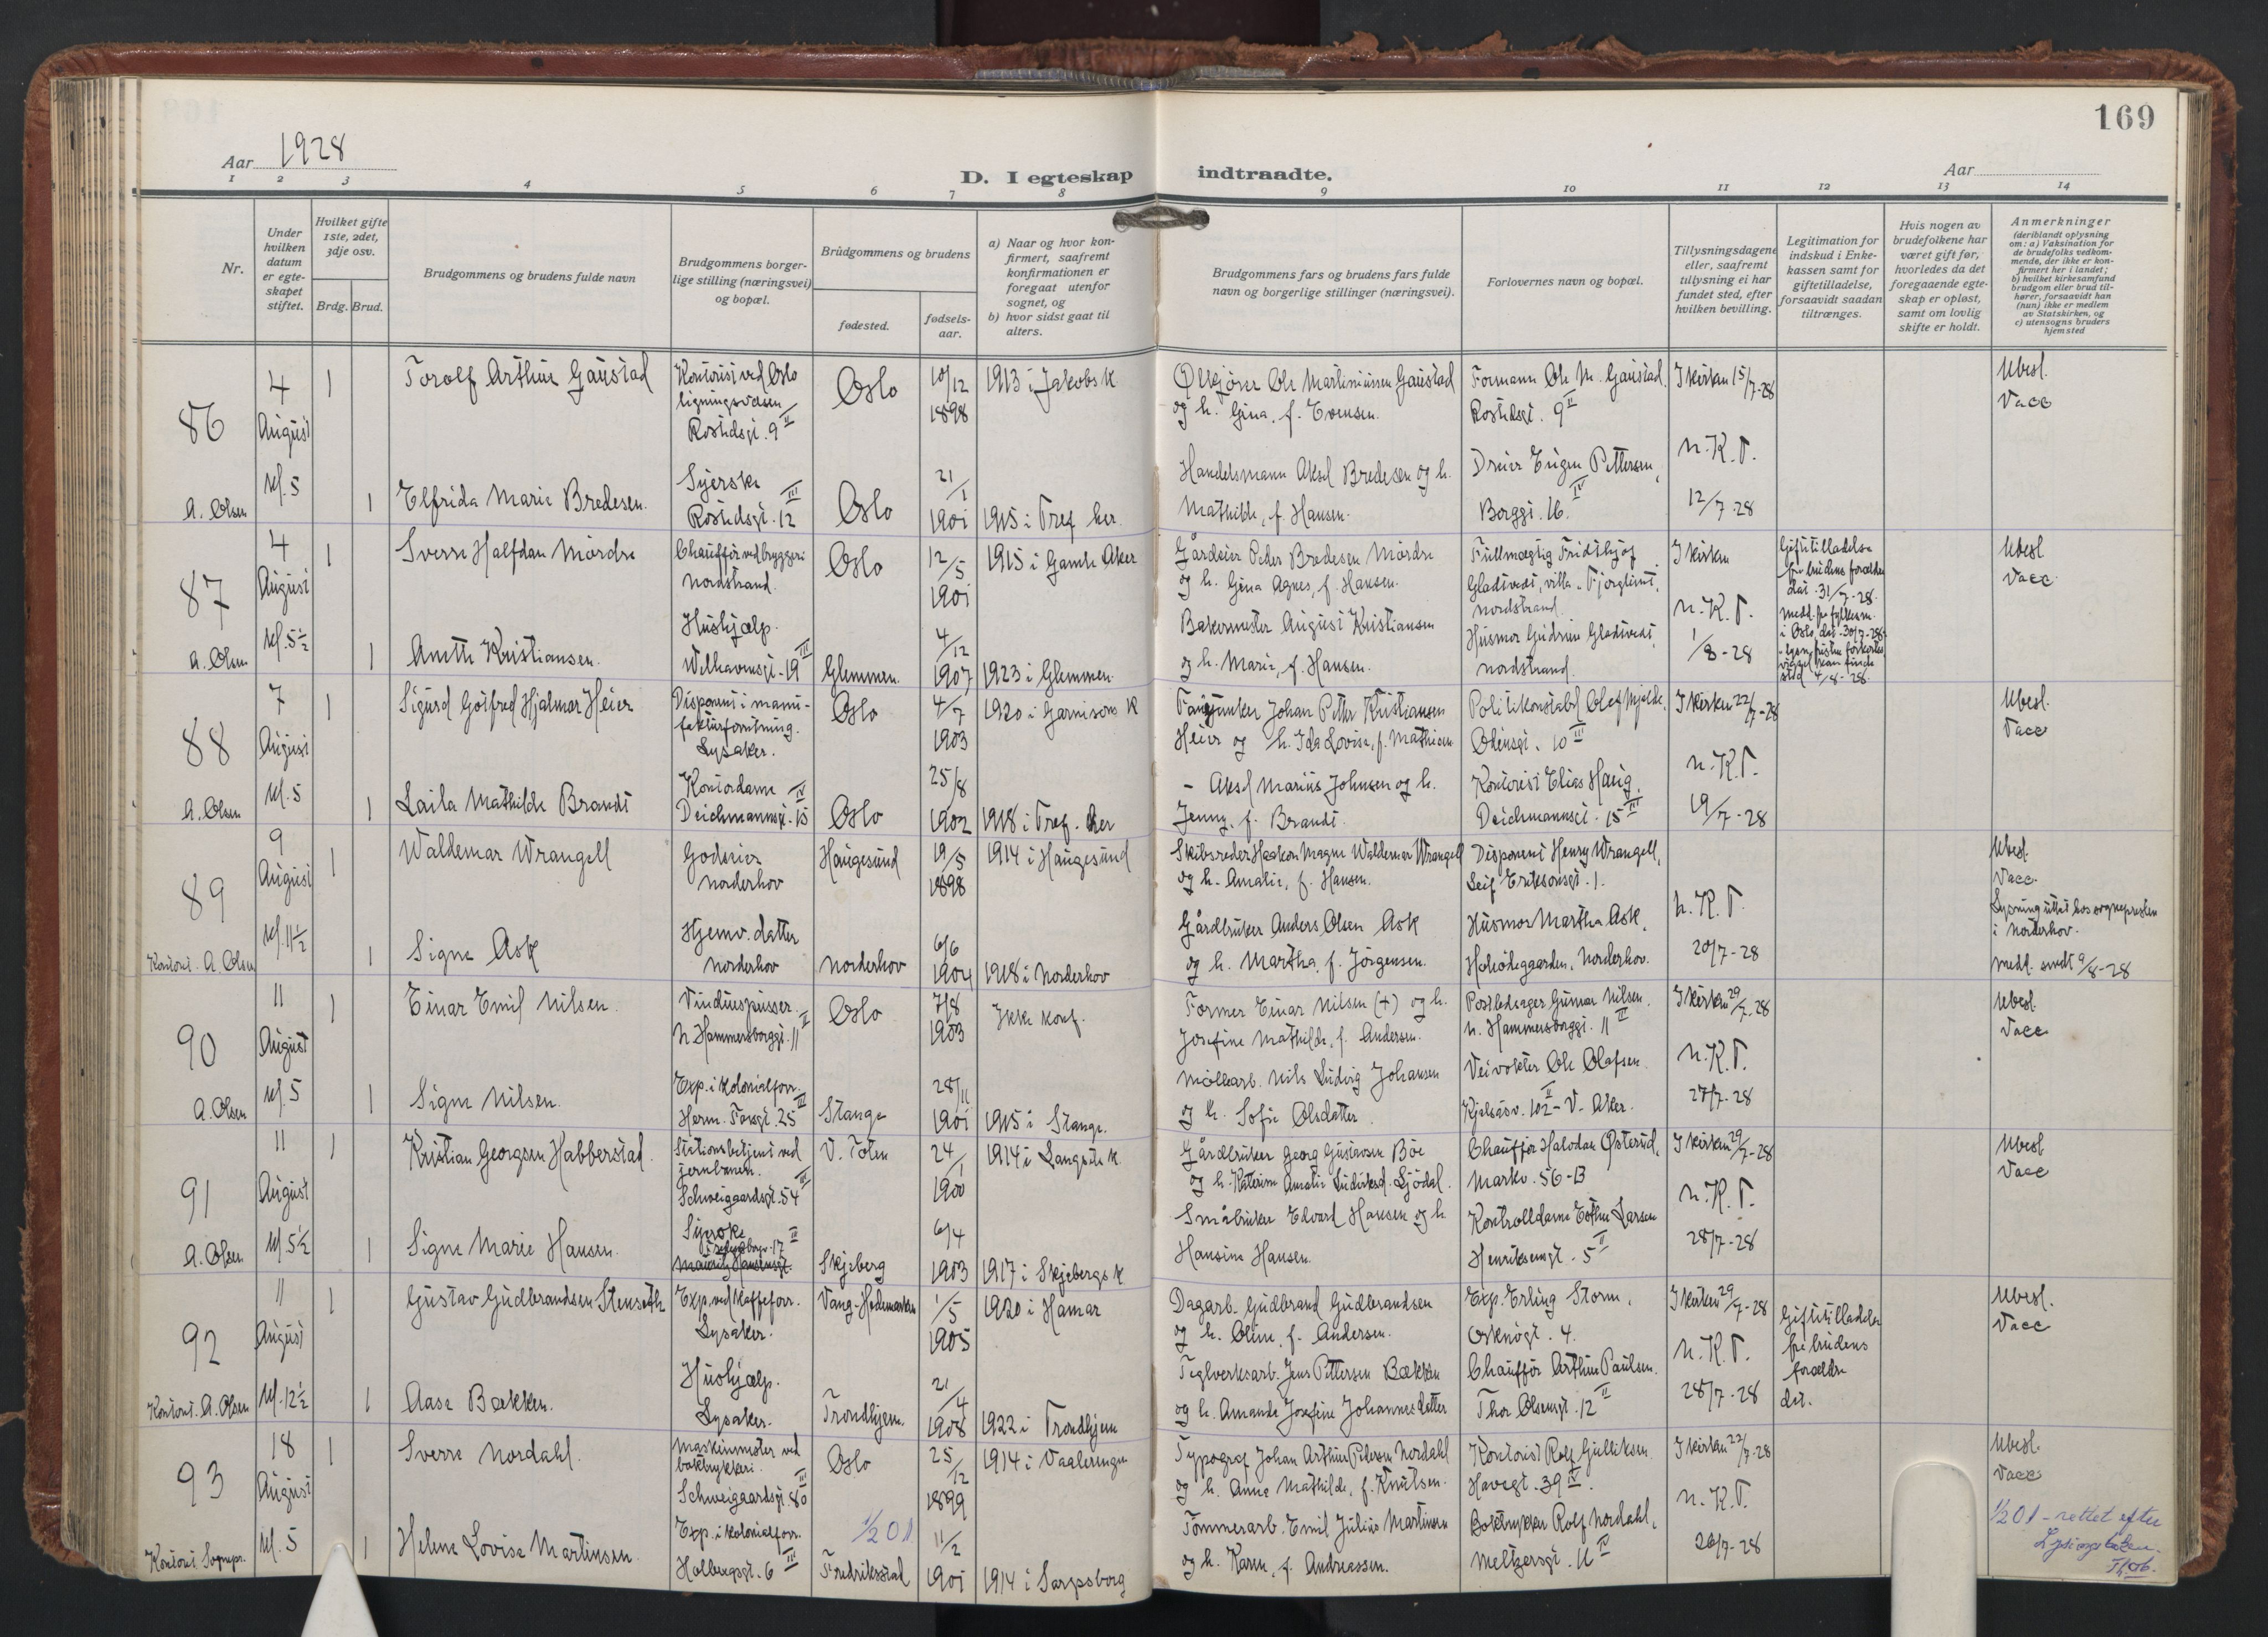 169
Aar 1928
D. I egteskap indtraadte.
Aar
1 2 3 4 5 6 7 8 9 10 11 12 13 14
Nr.
Under hvilken datum er egteskapet stiftet.
Hvilket gifte 1ste, 2det, 3dje osv.
Brdg. Brud.
Brudgommens og brudens fulde navn
Brudgommens borgerlige stilling (næringsvei) og bopæl.
Brudgommens og brudens
fødested.
fødselsaar.
a) Naar og hvor konfirmert, saafremt konfirmationen er foregaat utenfor sognet, og
b) hvor sidst gaat til alters.
Brudgommens fars og brudens fars fulde navn og borgerlige stillinger (næringsvei).
Forlovernes navn og bopæl.
Tillysningsdagene eller, saafremt tillysning ei har fundet sted, efter hvilken bevilling.
Legitimation for indskud i Enkekassen samt for giftetilladelse, forsaavidt saadan tiltrænges.
Hvis nogen av brudefolkene har været gift før, hvorledes da det foregaaende egteskap er opløst, samt om lovlig skifte er holdt.
Anmerkninger (deriblandt oplysning om: a) Vaksination for de brudefolks vedkommende, der ikke er konfirmert her i landet; b) hvilket kirkesamfund brudgom eller brud tilhører, forsaavidt han (hun) ikke er medlem av Statskirken, og c) utensogns bruders hjemsted
86
4 August kl. 5
A. Olsen
1
Torolf Arthur Gaustad
Kontorist ved Oslo
ligningsvæsen
Rostedsgt. 9 II
Oslo
10/12 1898
1913 i Jakobs K
Ølkjører Ole Martiniussen Gaustad
og h. Gina, f. Evensen.
Formann Ole M. Gaustad,
Rostedsgt. 9 II
I kirken 15/7-28
Ubesl.
Vacc
1
Elfrida Marie Bredesen.
Syerske
Rostedsgt. 12 III
Oslo
21/1 1901
1915 i Tref. her.
Handelsmann Aksel Bredesen og h.
Mathilde, f. Hansen.
Dreier Eugen Pettersen,
Borggt. 16. IV
N.K.T.
12/7-28
87
4 August kl. 5½
A. Olsen
1
Sverre Halfdan Mördre
Chauffør ved bryggeri
Nordstrand.
Oslo
12/5 1901
1915 i Gamle Aker
Gårdeier Peder Bredesen Mördre
og h. Gina Agnes, f. Hansen.
Fullmægtig Fridthjof
Gladtvedt, villa "Fjorglimt",
Nordstrand.
I kirken
Giftetilladelse
fra brudens forældre
dat. 31/7-28.
Ubesl
Vacc.
1
Anette Kristiansen.
Hushjælp.
Welhavensgt. 19 III
Glemmen.
4/12 1907
1923 i Glemmen.
Bakermester August Kristiansen
og h. Marie, f. Hansen.
Husmor Gudrun Gladtvedt,
Nordstrand.
N.K.T.
1/8-28
88
7 August kl. 5
A. Olsen
1
Sigurd Gotfred Hjalmar Heier
Disponent i manufakturforretning.
Lysaker.
Oslo
4/7 1903
1920 i Garnisons K
Johan Petter Kristiansen
Heier og h. Ida Lovise, f. Mathisen
Politikonstabel Olaf Mjelde,
Odinsgt. 10 III
I kirken 22/7-28
Ubesl.
Vacc
1
Laila Mathilde Brandt
Kontordame
Deichmannsgt. 15 IV
Oslo
25/8 1902
1918 i Tref. her
- Aksel Marius Johnsen og h.
Jenny, f. Brandt.
Kontorist Elias Haug,
Deichmannsgt. 15 III
N.K.T.
19/7-28
89
9 August kl. 11½
Kontoret. A. Olsen
1
Waldemar Wrangell
Godseier
Norderhov
Haugesund
19/5 1898
1914 i Haugesund
Skibsreder Haakon Magne Waldemar Wrangell
og h. Amalie, f. Hansen.
Disponent Henry Wrangell,
Leif Erikssonsgt. 1.
Ubesl.
Vacc.
Lysning uttat hos sognepresten
i Norderhov.
Medl. sendt 9/8-28
1
Signe Ask
Hjemv. datter
Norderhov
Norderhov
6/6 1904
1918 i Norderhov
Gårdbruker Anders Olsen Ask
og h. Martha, f. Jørgensen.
Husmor Martha Ask,
Norderhov.
N.K.T.
20/7-28
90
11 August kl. 5
A. Olsen
1
Einar Emil Nilsen.
Vinduspusser.
N. Hammersborggt. 11 II
Oslo
7/8 1903
Ikke konf.
Former Einar Nilsen (+) og h.
Josefine Mathilde, f. Andersen.
Postbedrager Gunnar Nilsen.
N. Hammersborggt. 11 II
I kirken 29/7-28
Ubesl.
Vacc
1
Signe Nilsen.
Exp. i kolonialforr.
Herm. Fossgt. 25 III
Stange
28/11 1901
1915 i Stange.
Møllearb. Nils Ludvig Johansen
og h. Sofie Olsdatter
Veivokter Ole Olafsen
Kjelsåsv. 102 II - V. Aker.
N.K.T.
27/7-28
91
11 August kl. 5½
A. Olsen
1
Kristian Georgsen Habberstad.
Stationsbetjent ved
jernbanen.
Schweigaardsgt. 54 III
V. Toten
24/1 1900
1914 i Langsets K.
Gårdbruker Georg Gustavsen Böe
og h. Katerine Amalie Ludviksd. Ljödal.
Chauffør Halvdan Østerud,
Markv. 56-B
I kirken 29/7-28
Ubesl
Vacc
1
Signe Marie Hansen.
Syerske
Skjeberg
6/4 1903
1917 i Skjebergs K
Småbruker Edvard Hansen og h.
Hansine Hansen.
Kontrolldame Esther Larsen
Henriksensgt. 5 II
N.K.T.
28/7-28
92
11 August kl. 12½
Kontoret. A. Olsen
1
Gustav Gudbrandsen Stenseth
Exp. ved kaffeforr.
Lysaker.
Vang-Hedemarken
1/5 1905
1920 i Hamar
Dagarb. Gudbrand Gudbrandsen
og h. Oline, f. Andersen.
Exp. Erling Storm,
4.
I kirken 29/7-28
Giftetilladelse
fra brudens
forældre
dat.
Ubesl.
Vacc
1
Aase Bækken.
Hushjælp.
Lysaker.
Trondhjem.
21/4 1908
1922 i Trondhjem
Teglverksarb. Jens Pettersen Bækken
og h. Amanda Josefine Johannesdatter
Chauffør Arthur Paulsen.
Thor Olsensgt. 12 II
N.K.T.
28/7-28
93
18 August kl. 5
Kontoret Sognepr.
1
Sverre Nordahl.
Maskinmester ved
boktrykkeri.
Schweigaardsgt. 80 III
Oslo
25/12 1899
1914 i Vaalerengen
Typograf Johan Arthur Pedersen Nordahl
og h. Anna Mathilde, f. Knutsen.
Kontorist Rolf Gulliksen
Havegt. 39 IV.
I kirken 22/7-28
Ubesl.
Vacc
1
Helene Lovise Martinsen.
Exp. i kolonialforr.
Holbergsgt. 6 III
Fredriksstad
11/2 1901
1914 i Sarpsborg
Tømmerarb. Emil Julius Martinsen
og h. Karen, f. Andreassen.
Boktrykker Rolf Nordahl,
Meltzersgt. 11 IV
N.K.T.
26/7-28
rettet efter
Lysingsboken.